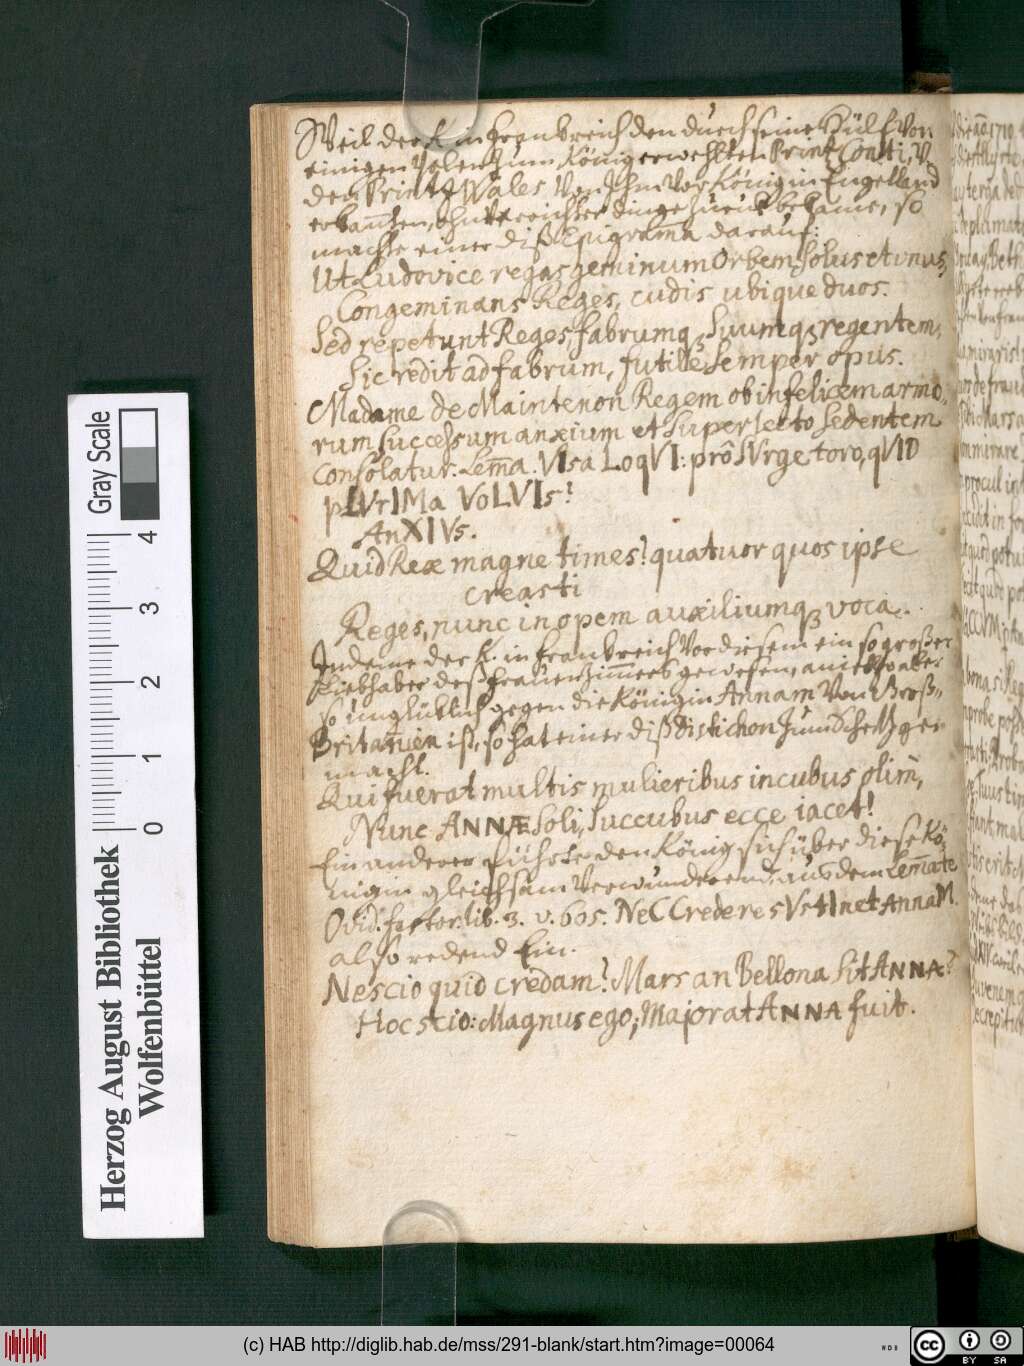 Weil der K. in Franckreich den durch seine Hülf von
einigen Polen zum König erwehlten Printz Conti, V.
den Printz Wales, von Ihm vor König in Engelland
erkannten, ohnverrichter dinge zurük bekame, so
machte einer diß Epigram̄a darauf:
Ut Ludovice regas geminum Orbem, solus et unus,
Congeminans Reges, cudis ubique duos.
Sed repetunt Reges fabrumq3 suumq3 regentem,
Sic redit ad fabrum, futile semper opus.
Madame de Maintenon Regem ob infelicem armo,
rum successum anxium et super lecto sedentem
consolatur. Lem̄a. VIsa LoqVI: prô SVrge toro, qVID
pLVrIMa VoLVIs?
AnXIVs.
Quid Rex magne times? quatuor quos ipse
creasti
Reges, nunc in opem auxiliumq3 voca.
Indeme der K. in Franckreich vor diesem ein so großer
Liebhaber deß Frauenzim̄ers gewesen, anietzo aber
so unglüklich gegen die Königin Annam von Groß-
Britannien ist, so hat einer diß distichon zum Schertz ge-
macht.
Qui fuerat multis mulieribus incubus olim,
Nunc ANNÆ soli, succubus ecce iacet!
Ein anderer führte den König sich über diese Kö-
nigin gleichsam verwunderend, aus dem Lem̄ate
Ovid. fastor. lib. 3. v. 605. NeC CredereS VstInet AnnaM.
also redend Ein.
Nescio quid credam? Mars an Bellona sit ANNA?
Hoc scio: Magnus ego, Major at ANNA fuit.
Gray Scale
4
3
2
1
0
Herzog August Bibliothek
Wolfenbüttel
(c) HAB http://diglib.hab.de/mss/291-blank/start.htm?image=00064
WDB
cc BY SA